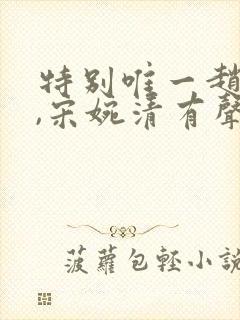 特别唯一趙
,宋婉清有聲
菠蘿包輕小說